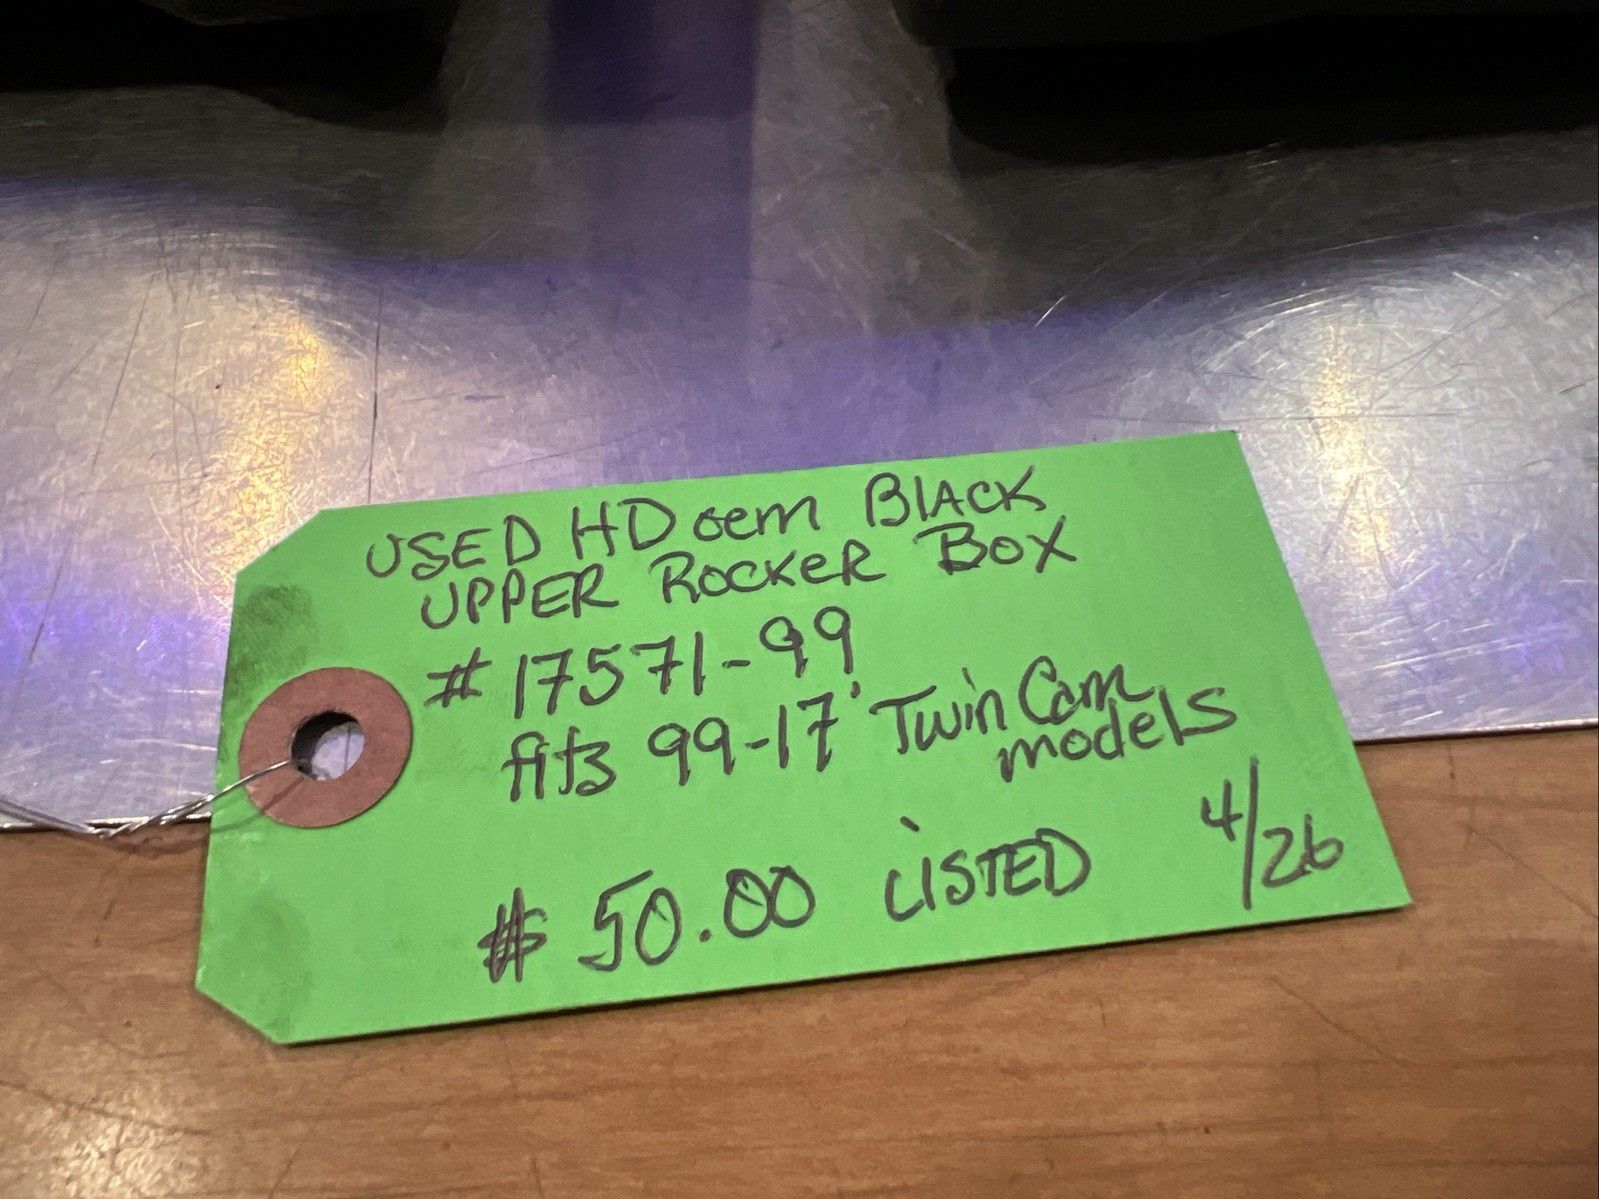 USED HD oem BLACK
UPPER ROCKER BOX
# 17571-99
fits 99-17' Twin Cam
models
$ 50.00 LISTED 4/26